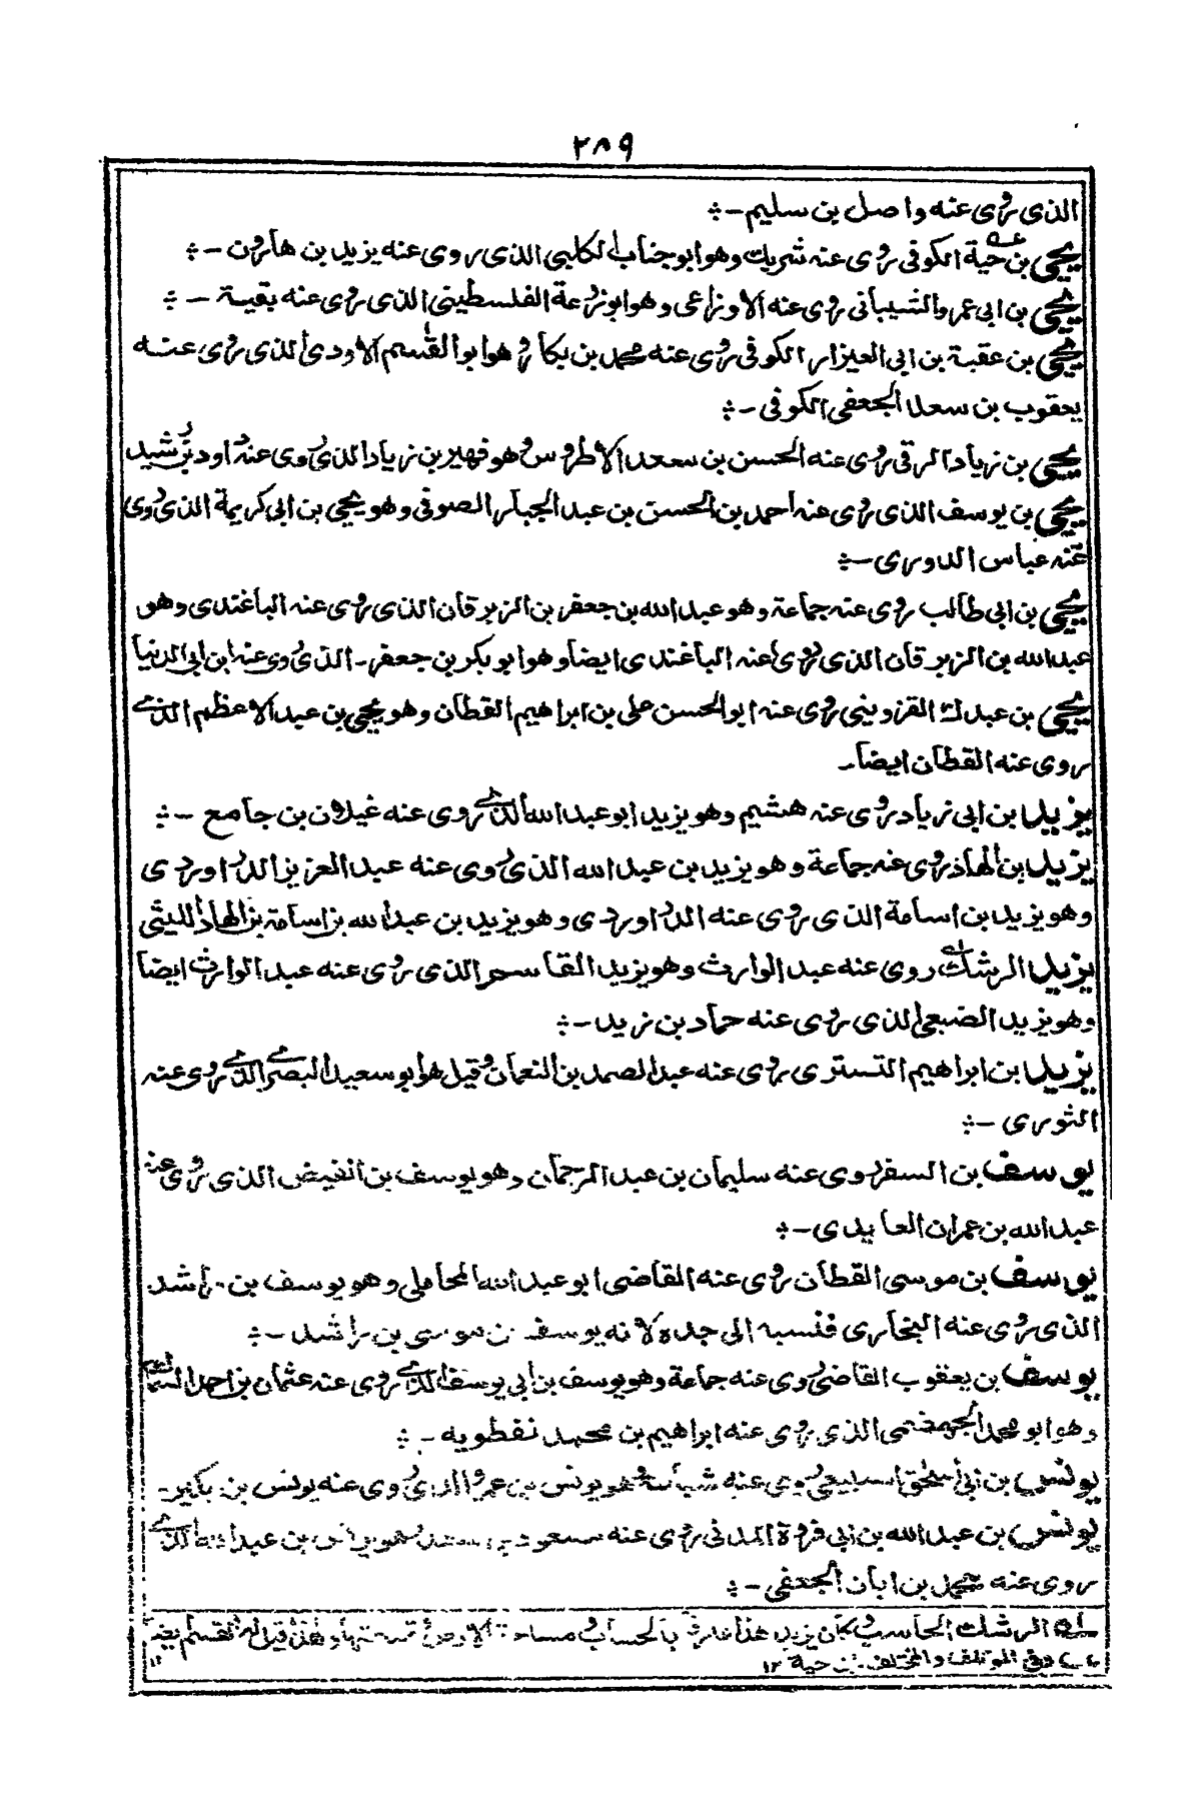 ٢٨٩
الذي روى عنه واصل بن سليم -
يحيى بن حية الكوفي روى عنه شريك وهو ابو جناب الكلبي الذي روى عنه يزيد بن هارون -
يحيى بن ابي عمرو الشيباني روى عنه الاوزاعي وهو ابو زرعة الفلسطيني الذي روى عنه بقية -
يحيى بن عقبة بن ابي العيزار الكوفي روى عنه محمد بن بكار وهو ابو القسم الاودي الذي روى عنه
يعقوب بن سعد الجعفي الكوفي -
يحيى بن زياد الرقي روى عنه الحسن بن سعد الاطروس وهو فهير بن زياد الذي روى عنه داود بن رشيد
يحيى بن يوسف الذي روى عنه احمد بن الحسن بن عبد الجبار الصوفي وهو يحيى بن ابي كريمة الذي روى
عنه عباس الدوري -
يحيى بن ابي طالب روى عنه جماعة وهو عبد الله بن جعفر بن الزبرقان الذي روى عنه الباغندي وهو
عبد الله بن الزبرقان الذي روى عنه الباغندي ايضا وهو ابو بكر بن جعفر - الذي روى عنه ابن ابي الدنيا
يحيى بن عبدك القزويني روى عنه ابو الحسن علي بن ابراهيم القطان وهو يحيى بن عبد الاعظم الذي
روى عنه القطان ايضا -
يزيد بن ابي زياد روى عنه هشيم وهو يزيد ابو عبد الله الذي روى عنه غيلان بن جامع -
يزيد بن الهاد روى عنه جماعة وهو يزيد بن عبد الله الذي روى عنه عبد العزيز الدراوردي
وهو يزيد بن اسامة الذي روى عنه الدراوردي وهو يزيد بن عبد الله بن اسامة بن الهاد الليثي
يزيد الرشك روى عنه عبد الوارث وهو يزيد القاسم الذي روى عنه عبد الوارث ايضا
وهو يزيد الضبعي الذي روى عنه حماد بن زيد -
يزيد بن ابراهيم التستري روى عنه عبد الصمد بن النعمان وقيل هو ابو سعيد البصري الذي روى عنه
الثوري -
يوسف بن السفر روى عنه سليمان بن عبد الرحمان وهو يوسف بن الفيض الذي روى عنه
عبد الله بن عمران العابدي -
يوسف بن موسى القطان روى عنه القاضي ابو عبد الله المحاملي وهو يوسف بن راشد
الذي روى عنه البخاري فنسبه الى جده لانه يوسف بن موسى بن راشد -
يوسف بن يعقوب القاضي روى عنه جماعة وهو يوسف بن ابي يوسف الذي روى عنه عثمان بن احمد
وهو ابو محمد الجهضمي الذي روى عنه ابراهيم بن محمد نفطويه -
يونس بن ابي اسحق السبيعي روى عنه شبابة وهو يونس بن عمرو الذي روى عنه يونس بن بكير -
يونس بن عبد الله بن ابي فروة المدني روى عنه بن عبد الله الذي
روى عنه محمد بن ابان الجعفي -
له الرشك الحاسب وكان يزيد هذا عارفا بالحساب و مساحة الارض قيل له القسام ايضا ١٢
وفي الموتلف والمختلف بن حية ١٢